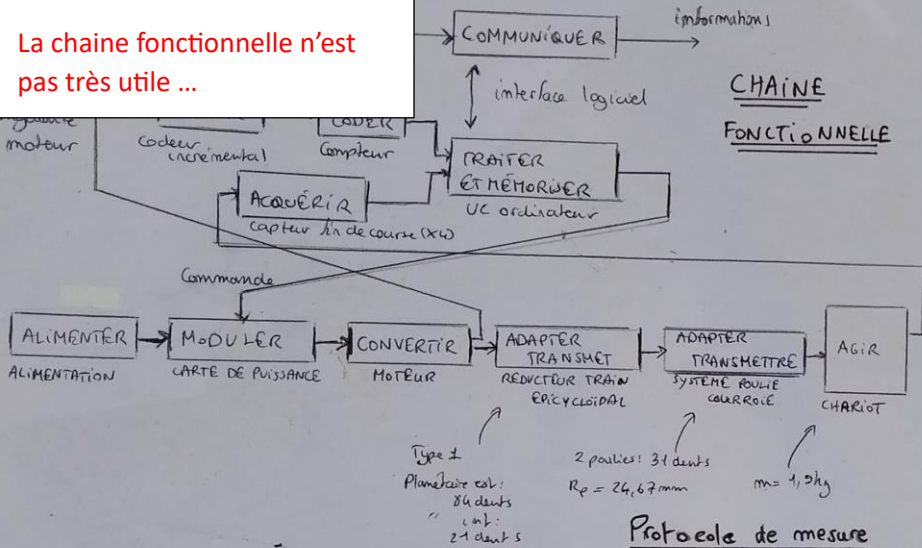 La chaine fonctionnelle n'est
pas très utile ...
COMMUNIQUER
informations
interface logiciel
CHAINE
FONCTIONNELLE
moteur
Codeur
incrémental
CODER
Compteur
TRAITER
ET MÉMORISER
UC ordinateur
ACQUÉRIR
Capteur fin de course (x4)
Commande
ALIMENTER
ALIMENTATION
MODULER
CARTE DE PUISSANCE
CONVERTIR
MOTEUR
ADAPTER
TRANSMET
RÉDUCTEUR TRAIN
EPICYCLOÏDAL
ADAPTER
TRANSMETTRE
SYSTÈME POULIE
COURROIE
AGIR
CHARIOT
Type 1
Planétaire ext:
84 dents
" int:
21 dents
2 poulies: 31 dents
Rp = 24,67mm
m = 1,9kg
Protocole de mesure